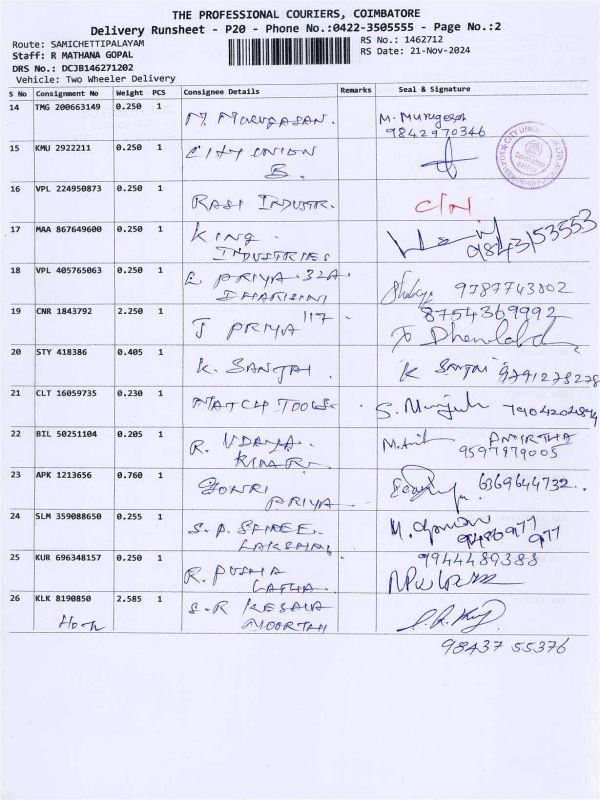 THE PROFESSIONAL COURIERS, COIMBATORE
Delivery Runsheet - P20 - Phone No.:0422-3505555 - Page No.:2
Route: SAMICHETTIPALAYAM
RS No.: 1462712
Staff: R MATHANA GOPAL
RS Date: 21-Nov-2024
DRS No.: DCJB146271202
Vehicle: Two Wheeler Delivery
S No Consignment No Weight PCS Consignee Details Remarks Seal & Signature
14 TMG 200663149 0.250 1 M. MURUGASAN. M. Murugesh
9842970346
15 KMU 2922211 0.250 1 CITY UNION
B.
16 VPL 224950873 0.250 1 RASI INDUSTR. C/N
17 MAA 867649600 0.250 1 KING
INDUSTRIES 9843153553
18 VPL 405765063 0.250 1 E PRIYA. 32A.
DHARISINI 9787743802
19 CNR 1843792 2.250 1 J PRIYA 117 8754369992
20 STY 418386 0.405 1 K. SANJAI. K Sanjai 9791278278
21 CLT 16059735 0.230 1 MATCH TOOLS.
22 BIL 50251104 0.205 1 R. UDAYA. AMIRTHA
KUMARI 9597979005
23 APK 1213656 0.760 1 GOWRI 6369644732..
PRIYA
24 SLM 359088650 0.255 1 S. P. SHREE.
LAKSHMI
25 KUR 696348157 0.250 1 R. PUSHA 9944489388
LATHA.
26 KLK 8190850 2.585 1 S. R KESAVA
MOORTHI
98437 55376